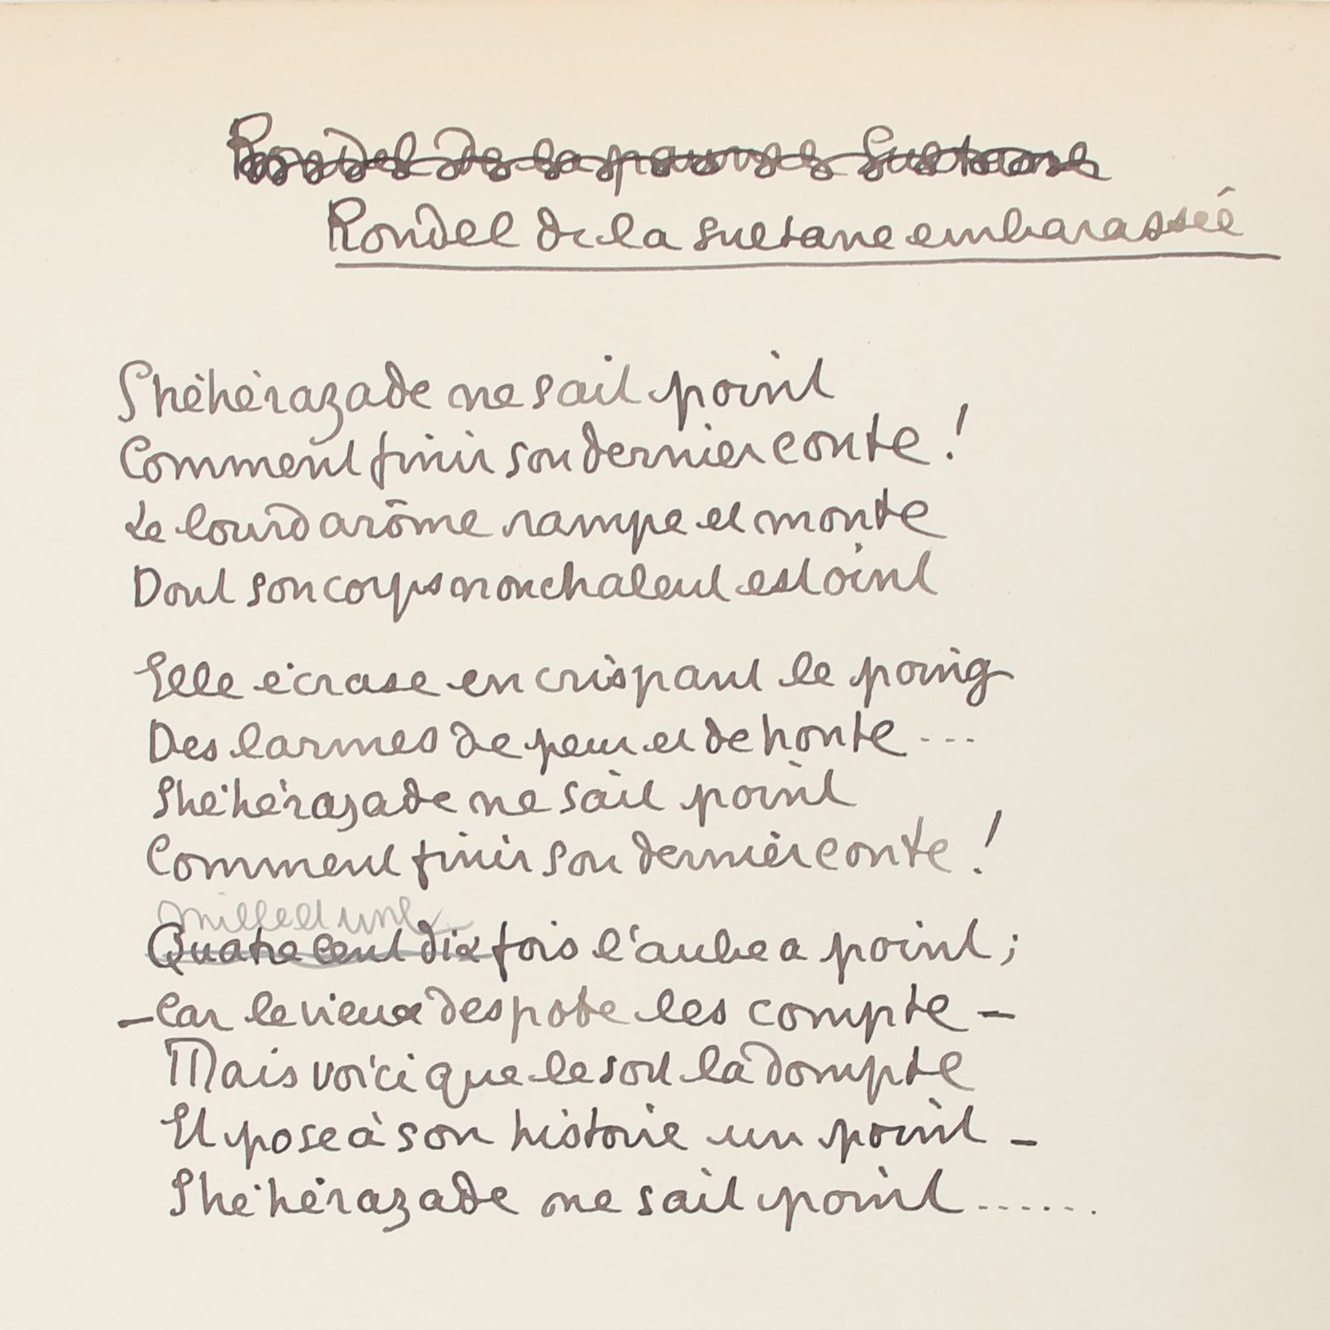 Rondel de la pauvre Sultane
Rondel de la sultane embarassée
Shéhérazade ne sait point
Comment finir son dernier conte !
Le lourd arôme rampe et monte
Dont son corps nonchalent est oint
Elle écrase en crispant le poing
Des larmes de peur et de honte ...
Shéhérazade ne sait point
Comment finir son dernier conte !
mille et une
Quatre cent dix fois l'aube a point ;
– Car le vieux despote les compte –
Mais voici que le sort la dompte
Et pose à son histoire un point –
Shéhérazade ne sait point ......